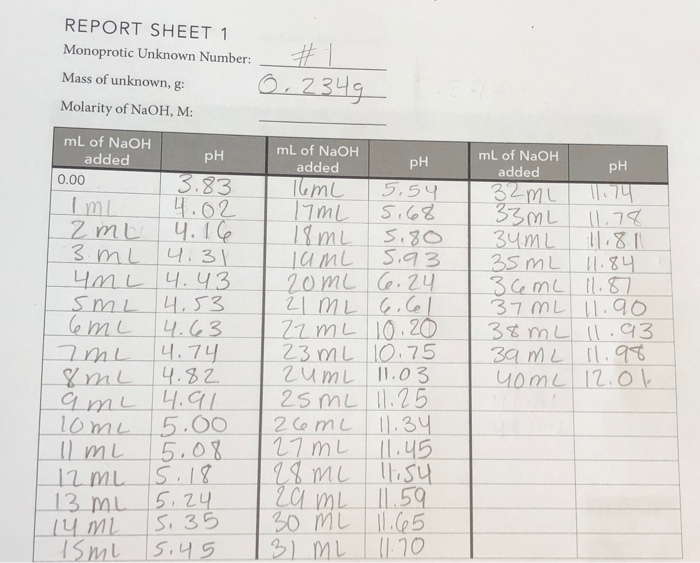 REPORT SHEET 1
Monoprotic Unknown Number: #1
Mass of unknown, g: 0.234g
Molarity of NaOH, M:
mL of NaOH added pH mL of NaOH added pH mL of NaOH added pH
0.00 3.83 16mL 5.54 32mL 11.74
1mL 4.02 17mL 5.68 33mL 11.78
2mL 4.16 18mL 5.80 34mL 11.81
3mL 4.31 19mL 5.93 35mL 11.84
4mL 4.43 20mL 6.24 36mL 11.87
5mL 4.53 21mL 6.61 37mL 11.90
6mL 4.63 22mL 10.20 38mL 11.93
7mL 4.74 23mL 10.75 39mL 11.98
8mL 4.82 24mL 11.03 40mL 12.01
9mL 4.91 25mL 11.25
10mL 5.00 26mL 11.34
11mL 5.08 27mL 11.45
12mL 5.18 28mL 11.54
13mL 5.24 29mL 11.59
14mL 5.35 30mL 11.65
15mL 5.45 31mL 11.70